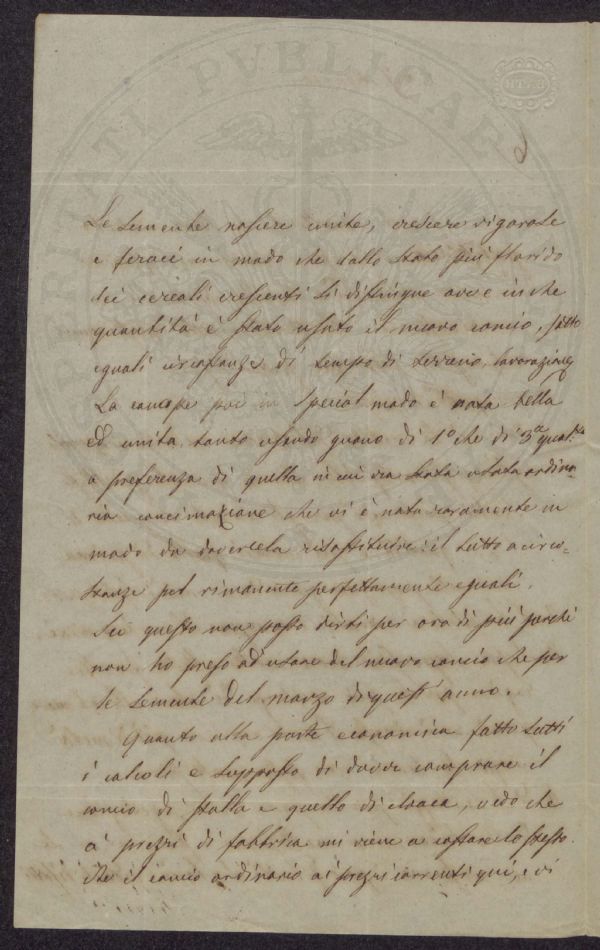 PVBLICAE
6
Le semente nascere unite, crescere vigorose
e feraci in modo che dallo stato più florido
dei cereali crescenti si distingue ove e in che
quantità è stato usato il nuovo concio, sotto
eguali circostanze di tempo di terreno, lavorazione
La canape poi in special modo è nata bella
ed unita tanto usando guano di 1° che di 3a qual.tà
a preferenza di quella in cui era stata usata ordina-
ria concimazione che vi è nata raramente in
modo da dovercela risostituire: il tutto a circo-
stanze pel rimanente perfettamente eguali.
Su questo non posso dirti per ora di più perchè
non ho preso ad usare del nuovo concio che per
le semente del marzo di quest' anno.
Quanto alla parte economica fatto tutti
i calcoli e supposto di dover comprare il
concio di stalla e quello di cloaca, vedo che
a' prezzi di fabbrica mi viene a costare lo stesso
che il concio ordinario ai prezzi correnti qui, e vi